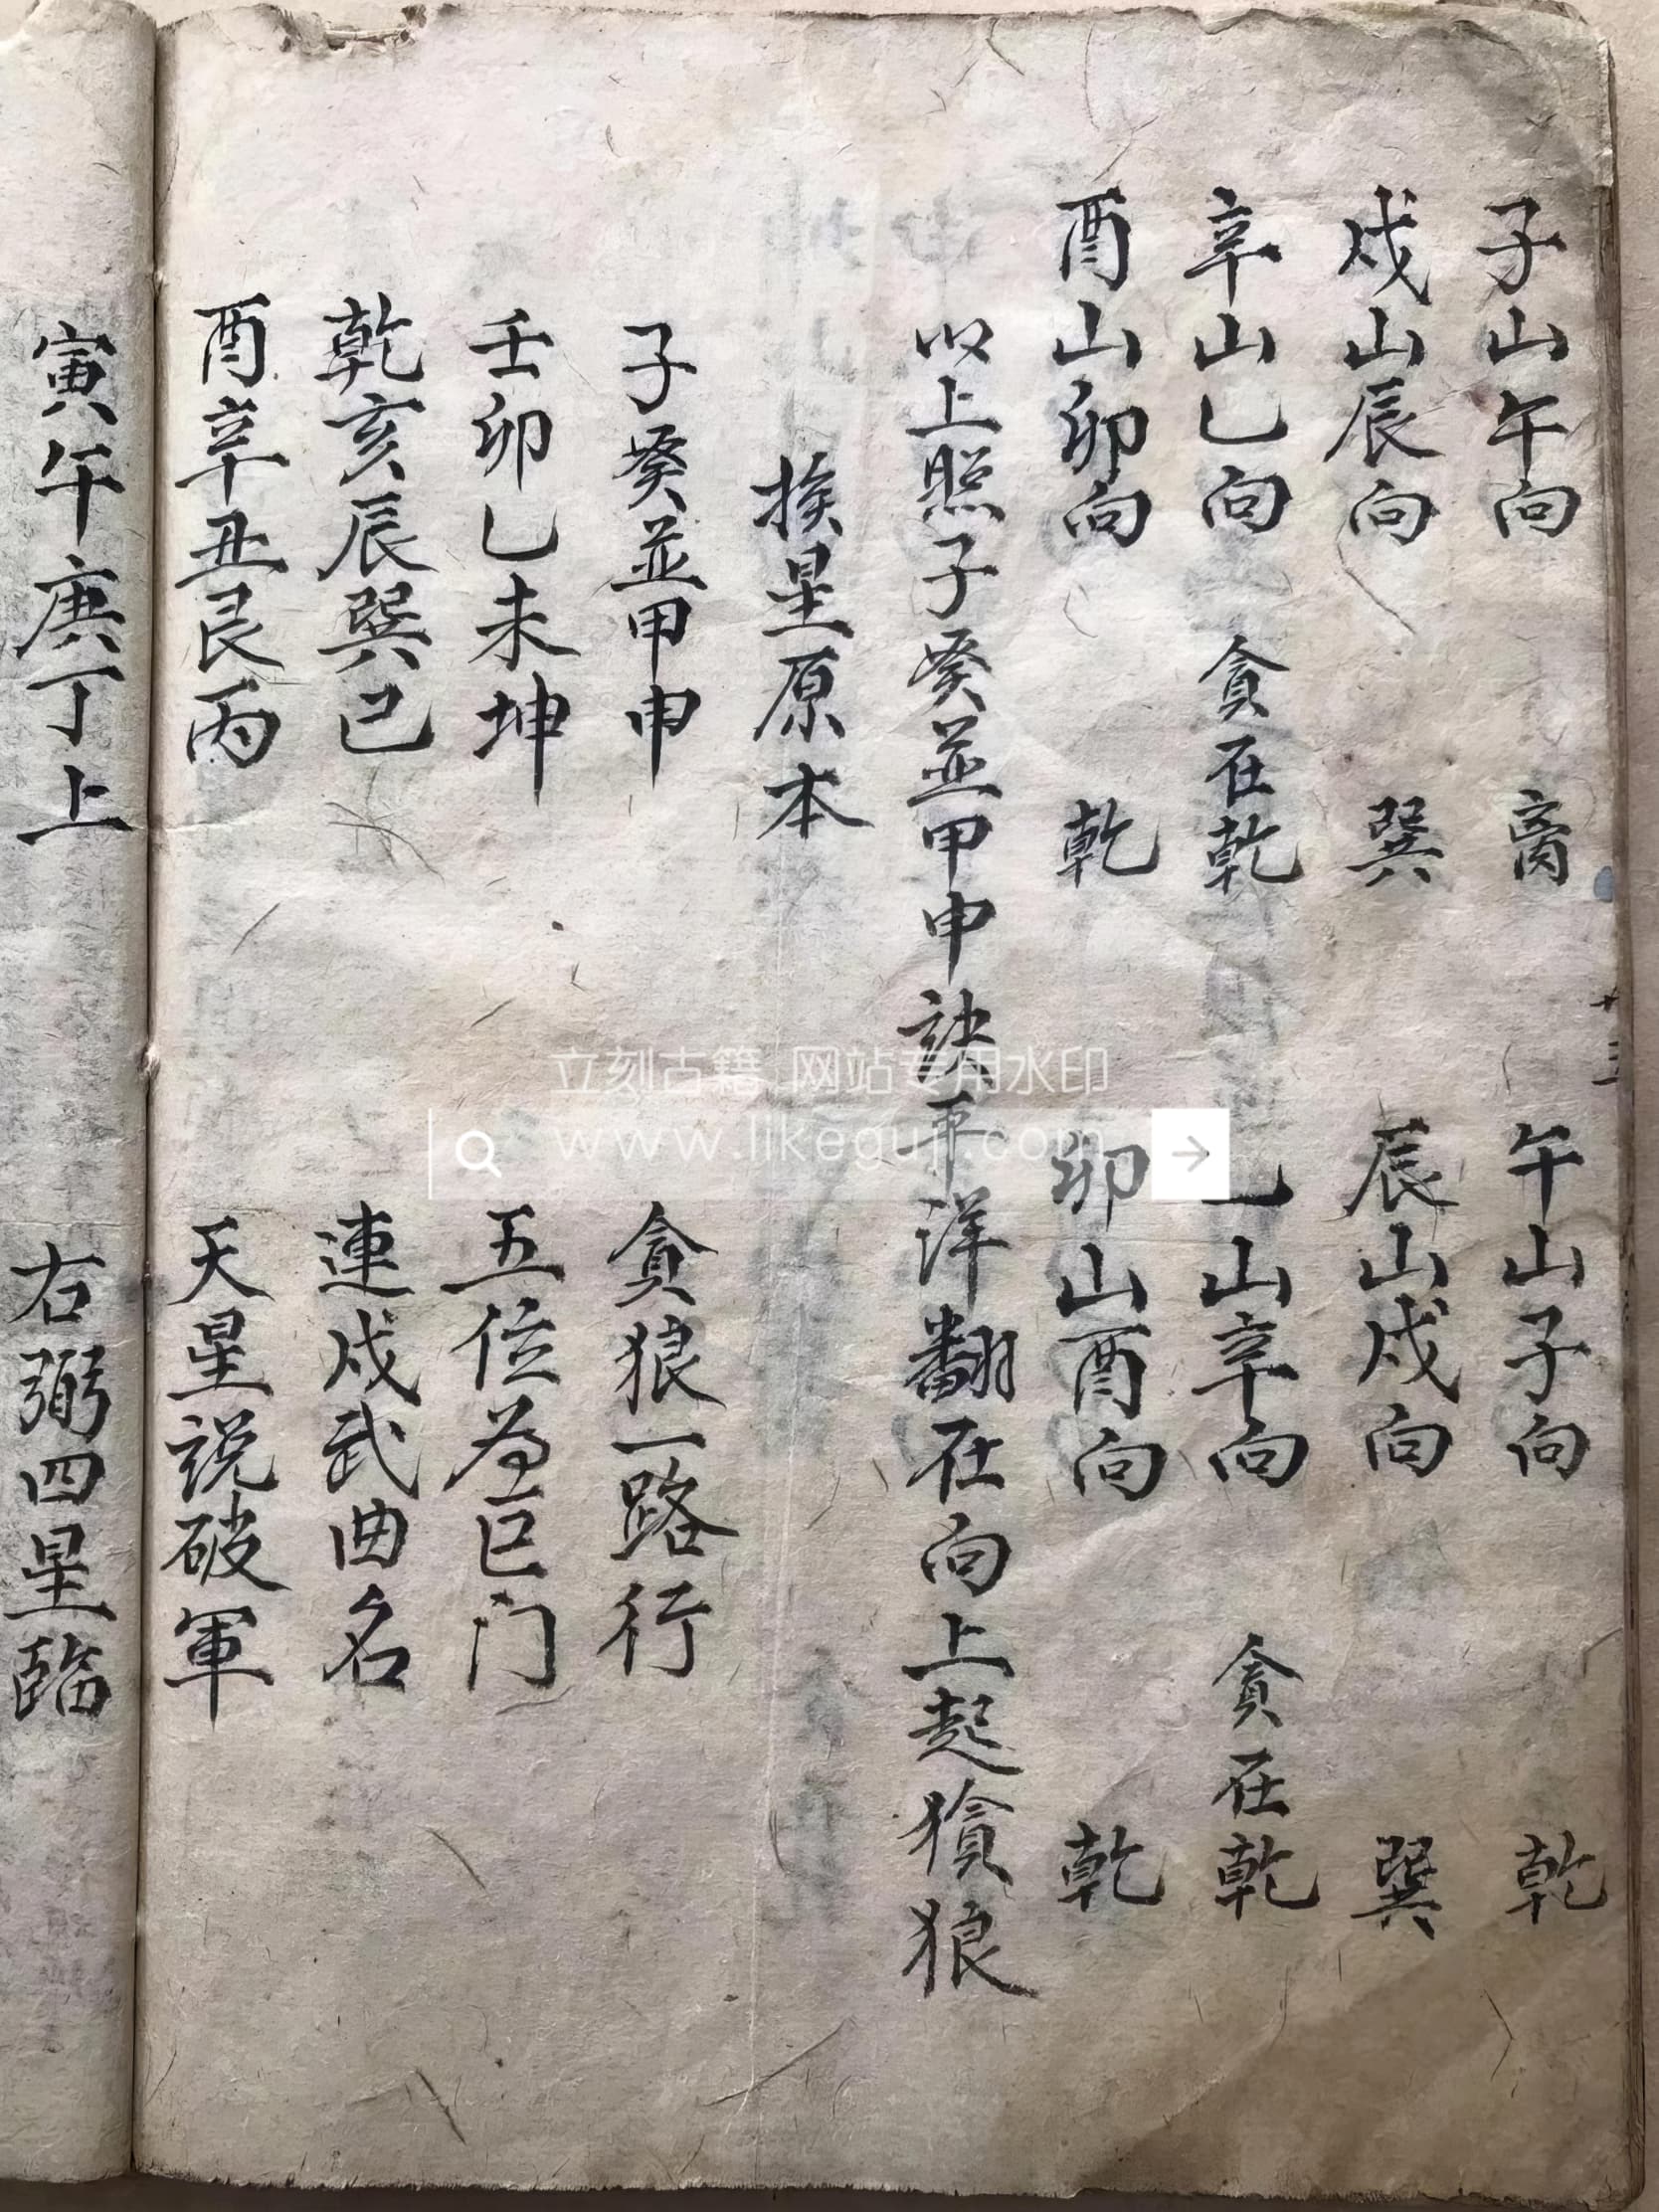 子山午向 离 午山子向 乾
戍山辰向 巽 辰山戍向 巽
辛山乙向 貪在乾 乙山辛向 貪在乾
酉山卯向 乾 卯山酉向 乾
以上照子癸並甲申訣平洋翻在向上起獖狼
挨星原本
子癸並甲申 貪狼一路行
壬卯乙未坤 五位為巨门
乾亥辰巽已 連戍武曲名
酉辛丑艮丙 天星説破軍
寅午庚丁上 右弼四星臨
立刻古籍 网站专用水印
www.likeguji.com